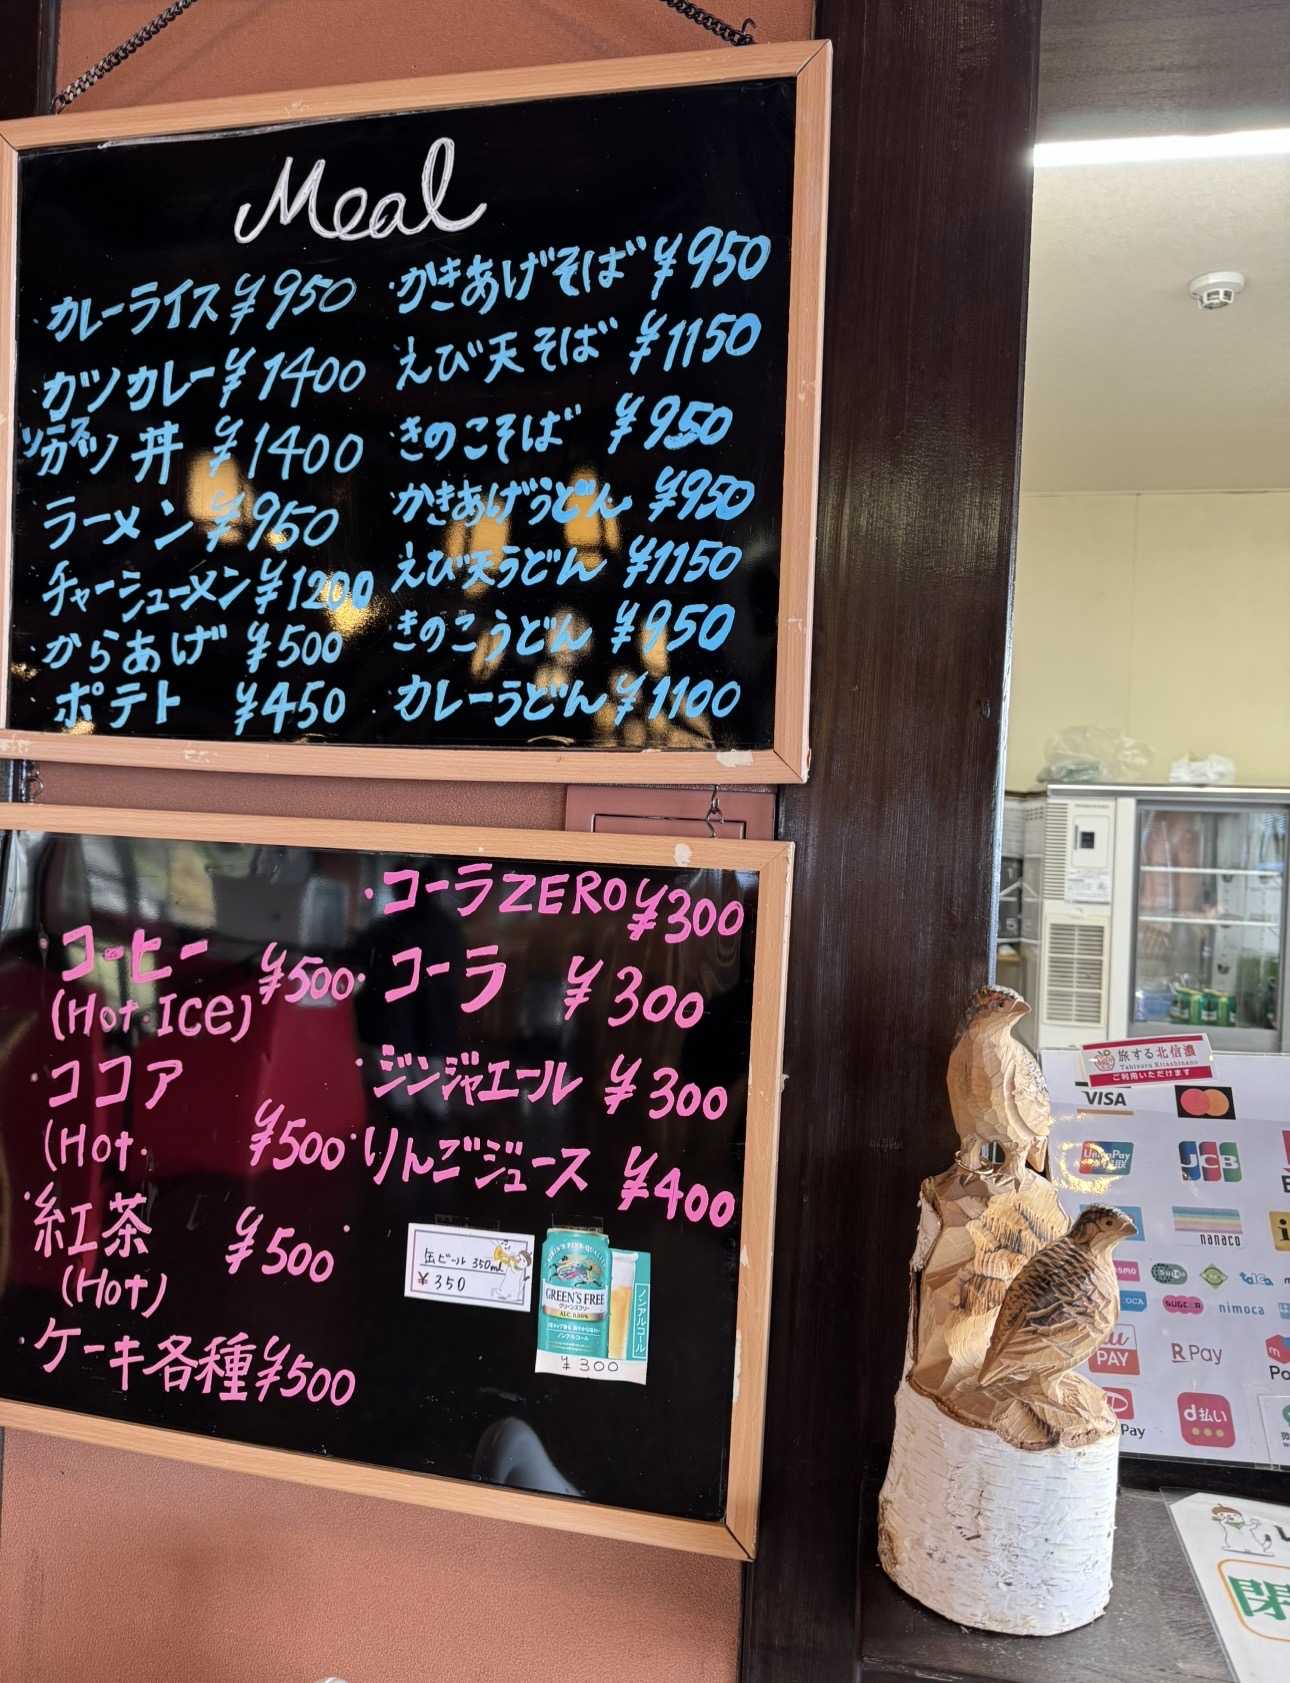 Meal
・カレーライス ¥950
・カツカレー ¥1400
・ソースカツ丼 ¥1400
・ラーメン ¥950
・チャーシューメン ¥1200
・からあげ ¥500
・ポテト ¥450
・かきあげそば ¥950
・えび天そば ¥1150
・きのこそば ¥950
・かきあげうどん ¥950
・えび天うどん ¥1150
・きのこうどん ¥950
・カレーうどん ¥1100
・コーヒー ¥500
(Hot・Ice)
・ココア
(Hot・ ¥500
・紅茶 ¥500
(Hot)
・ケーキ各種 ¥500
・コーラZERO ¥300
・コーラ ¥300
・ジンジャエール ¥300
・りんごジュース ¥400
缶ビール 350ml
¥350
GREEN'S FREE
グリーンズフリー
ALC. 0.00%
ノンアルコール
ノンアルコール
¥300
旅する北信濃
Tabisuru Kitashinano
ご利用いただけます
VISA
UnionPay
JCB
nanaco
SUGOCA
nimoca
PAY
R Pay
Pay
d払い
閉